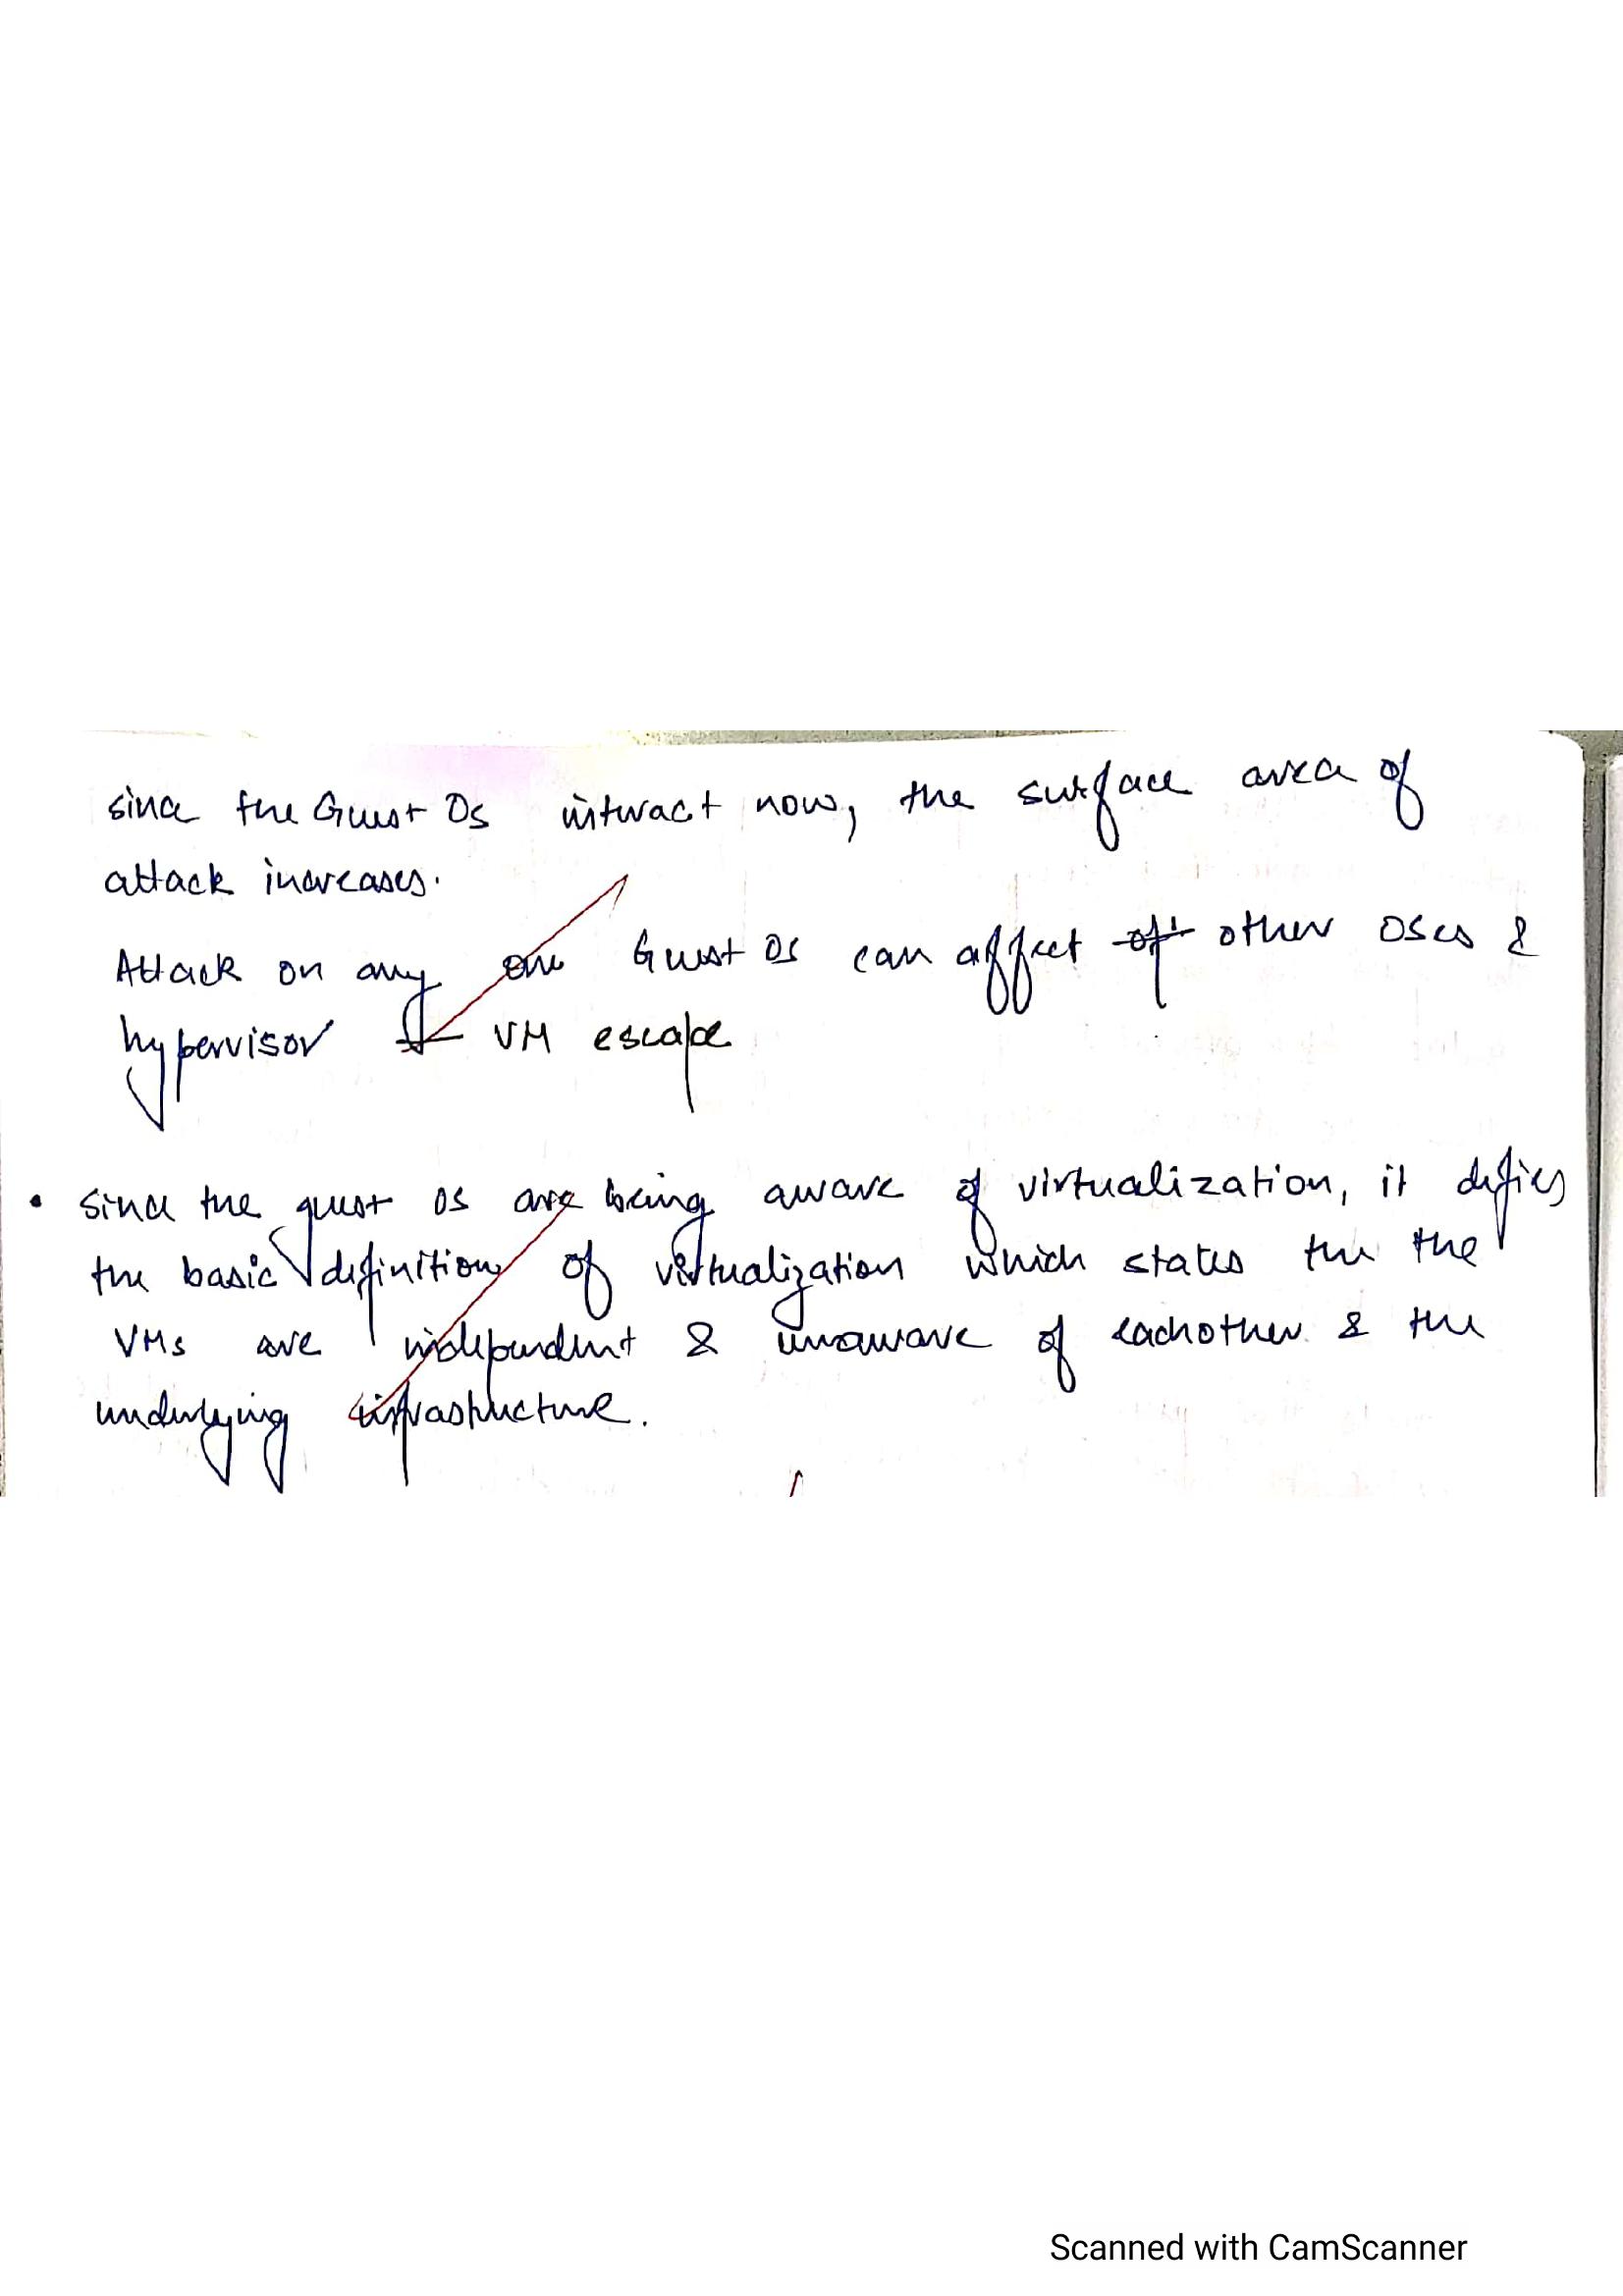 since the Guest Os interact now, the surface area of
attack increases.
Attack on any one Guest OS can affect other OSes &
hypervisor VM escape
• Since the guest OS are being aware of virtualization, it defies
the basic definition of virtualization which states the the
VMs are independent & unaware of eachother & the
underlying infrastructure.
Scanned with CamScanner